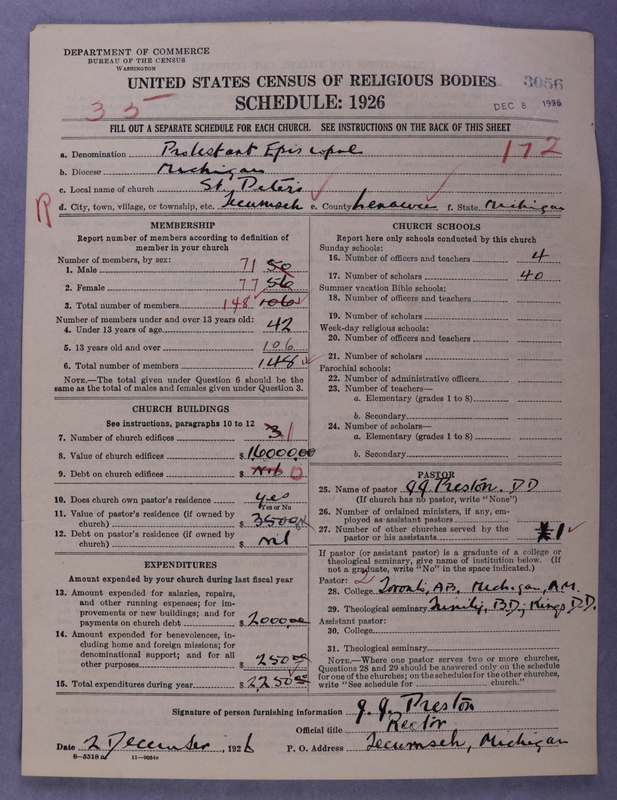 DEPARTMENT OF COMMERCE
BUREAU OF THE CENSUS
WASHINGTON
UNITED STATES CENSUS OF RELIGIOUS BODIES
3056
35
SCHEDULE: 1926
DEC 8 1926
FILL OUT A SEPARATE SCHEDULE FOR EACH CHURCH. SEE INSTRUCTIONS ON THE BACK OF THIS SHEET
a. Denomination Protestant Episcopal
172
b. Diocese Michigan
c. Local name of church St. Peter's
d. City, town, village, or township, etc. Tecumseh e. County Lenawee f. State Michigan
R
MEMBERSHIP
Report number of members according to definition of
member in your church
Number of members, by sex:
1. Male 71 50
2. Female 77 56
3. Total number of members 148 106
Number of members under and over 13 years old:
4. Under 13 years of age 42
5. 13 years old and over 106
6. Total number of members 148
NOTE.—The total given under Question 6 should be the
same as the total of males and females given under Question 3.
CHURCH BUILDINGS
See instructions, paragraphs 10 to 12
7. Number of church edifices 3 1
8. Value of church edifices $ 16000.00
9. Debt on church edifices $ Nil 0
10. Does church own pastor's residence yes
Yes or No
11. Value of pastor's residence (if owned by
church) $ 3500
12. Debt on pastor's residence (if owned by
church) $ nil
EXPENDITURES
Amount expended by your church during last fiscal year
13. Amount expended for salaries, repairs,
and other running expenses; for im-
provements or new buildings; and for
payments on church debt $ 2000.00
14. Amount expended for benevolences, in-
cluding home and foreign missions; for
denominational support; and for all
other purposes $ 250.00
15. Total expenditures during year $ 2250.00
CHURCH SCHOOLS
Report here only schools conducted by this church
Sunday schools:
16. Number of officers and teachers 4
17. Number of scholars 40
Summer vacation Bible schools:
18. Number of officers and teachers
19. Number of scholars
Week-day religious schools:
20. Number of officers and teachers
21. Number of scholars
Parochial schools:
22. Number of administrative officers
23. Number of teachers—
a. Elementary (grades 1 to 8)
b. Secondary
24. Number of scholars—
a. Elementary (grades 1 to 8)
b. Secondary
PASTOR
25. Name of pastor J.J. Preston. DD
(If church has no pastor, write "None")
26. Number of ordained ministers, if any, em-
ployed as assistant pastors
27. Number of other churches served by the
pastor or his assistants 1
If pastor (or assistant pastor) is a graduate of a college or
theological seminary, give name of institution below. (If
not a graduate, write "No" in the space indicated.)
Pastor: 2
28. College Toronto, AB, Michigan, A.M.
29. Theological seminary Trinity, BD; Kings D.D.
Assistant pastor:
30. College
31. Theological seminary
NOTE.—Where one pastor serves two or more churches,
Questions 28 and 29 should be answered only on the schedule
for one of the churches; on the schedules for the other churches,
write "See schedule for church."
Signature of person furnishing information J. J. Preston
Official title Rector
Date 2 December, 1926 P. O. Address Tecumseh, Michigan
8—5518a 11—9054c